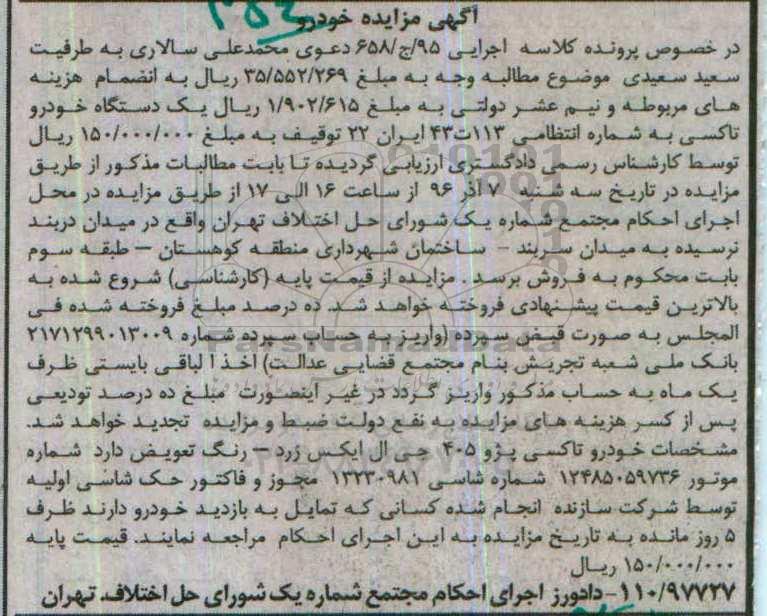 آگهی مزایده خودرو
در خصوص پرونده کلاسه اجرایی ۹۵/ج/۶۵۸ دعوی محمدعلی سالاری به طرفیت
سعید سعیدی موضوع مطالبه وجه به مبلغ ۳۵/۵۵۲/۲۶۹ ریال به انضمام هزینه
های مربوطه و نیم عشر دولتی به مبلغ ۱/۹۰۲/۶۱۵ ریال یک دستگاه خودرو
تاکسی به شماره انتظامی ۱۱۳ت۴۳ ایران ۲۲ توقیف به مبلغ ۱۵۰/۰۰۰/۰۰۰ ریال
توسط کارشناس رسمی دادگستری ارزیابی گردیده تا بابت مطالبات مذکور از طریق
مزایده در تاریخ سه شنبه ۷ آذر ۹۶ از ساعت ۱۶ الی ۱۷ از طریق مزایده در محل
اجرای احکام مجتمع شماره یک شورای حل اختلاف تهران واقع در میدان دربند
نرسیده به میدان سربند – ساختمان شهرداری منطقه کوهستان – طبقه سوم
بابت محکوم به فروش برسد . مزایده از قیمت پایه (کارشناسی) شروع شده به
بالاترین قیمت پیشنهادی فروخته خواهد شد. ده درصد مبلغ فروخته شده فی
المجلس به صورت قبض سپرده (واریز به حساب سپرده شماره ۲۱۷۱۲۹۹۰۱۳۰۰۹
بانک ملی شعبه تجریش بنام مجتمع قضایی عدالت) اخذ ا لباقی بایستی ظرف
یک ماه به حساب مذکور واریز گردد در غیر اینصورت مبلغ ده درصد تودیعی
پس از کسر هزینه های مزایده به نفع دولت ضبط و مزایده تجدید خواهد شد.
مشخصات خودرو تاکسی پژو ۴۰۵ جی ال ایکس زرد – رنگ تعویض دارد شماره
موتور ۱۲۴۸۵۰۵۹۷۳۶ شماره شاسی ۱۳۲۳۰۹۸۱ مجوز و فاکتور حک شاسی اولیه
توسط شرکت سازنده انجام شده کسانی که تمایل به بازدید خودرو دارند ظرف
۵ روز مانده به تاریخ مزایده به این اجرای احکام مراجعه نمایند. قیمت پایه
۱۵۰/۰۰۰/۰۰۰ ریال
۱۱۰/۹۷۷۲۷- دادورز اجرای احکام مجتمع شماره یک شورای حل اختلاف تهران
ParsNamadData